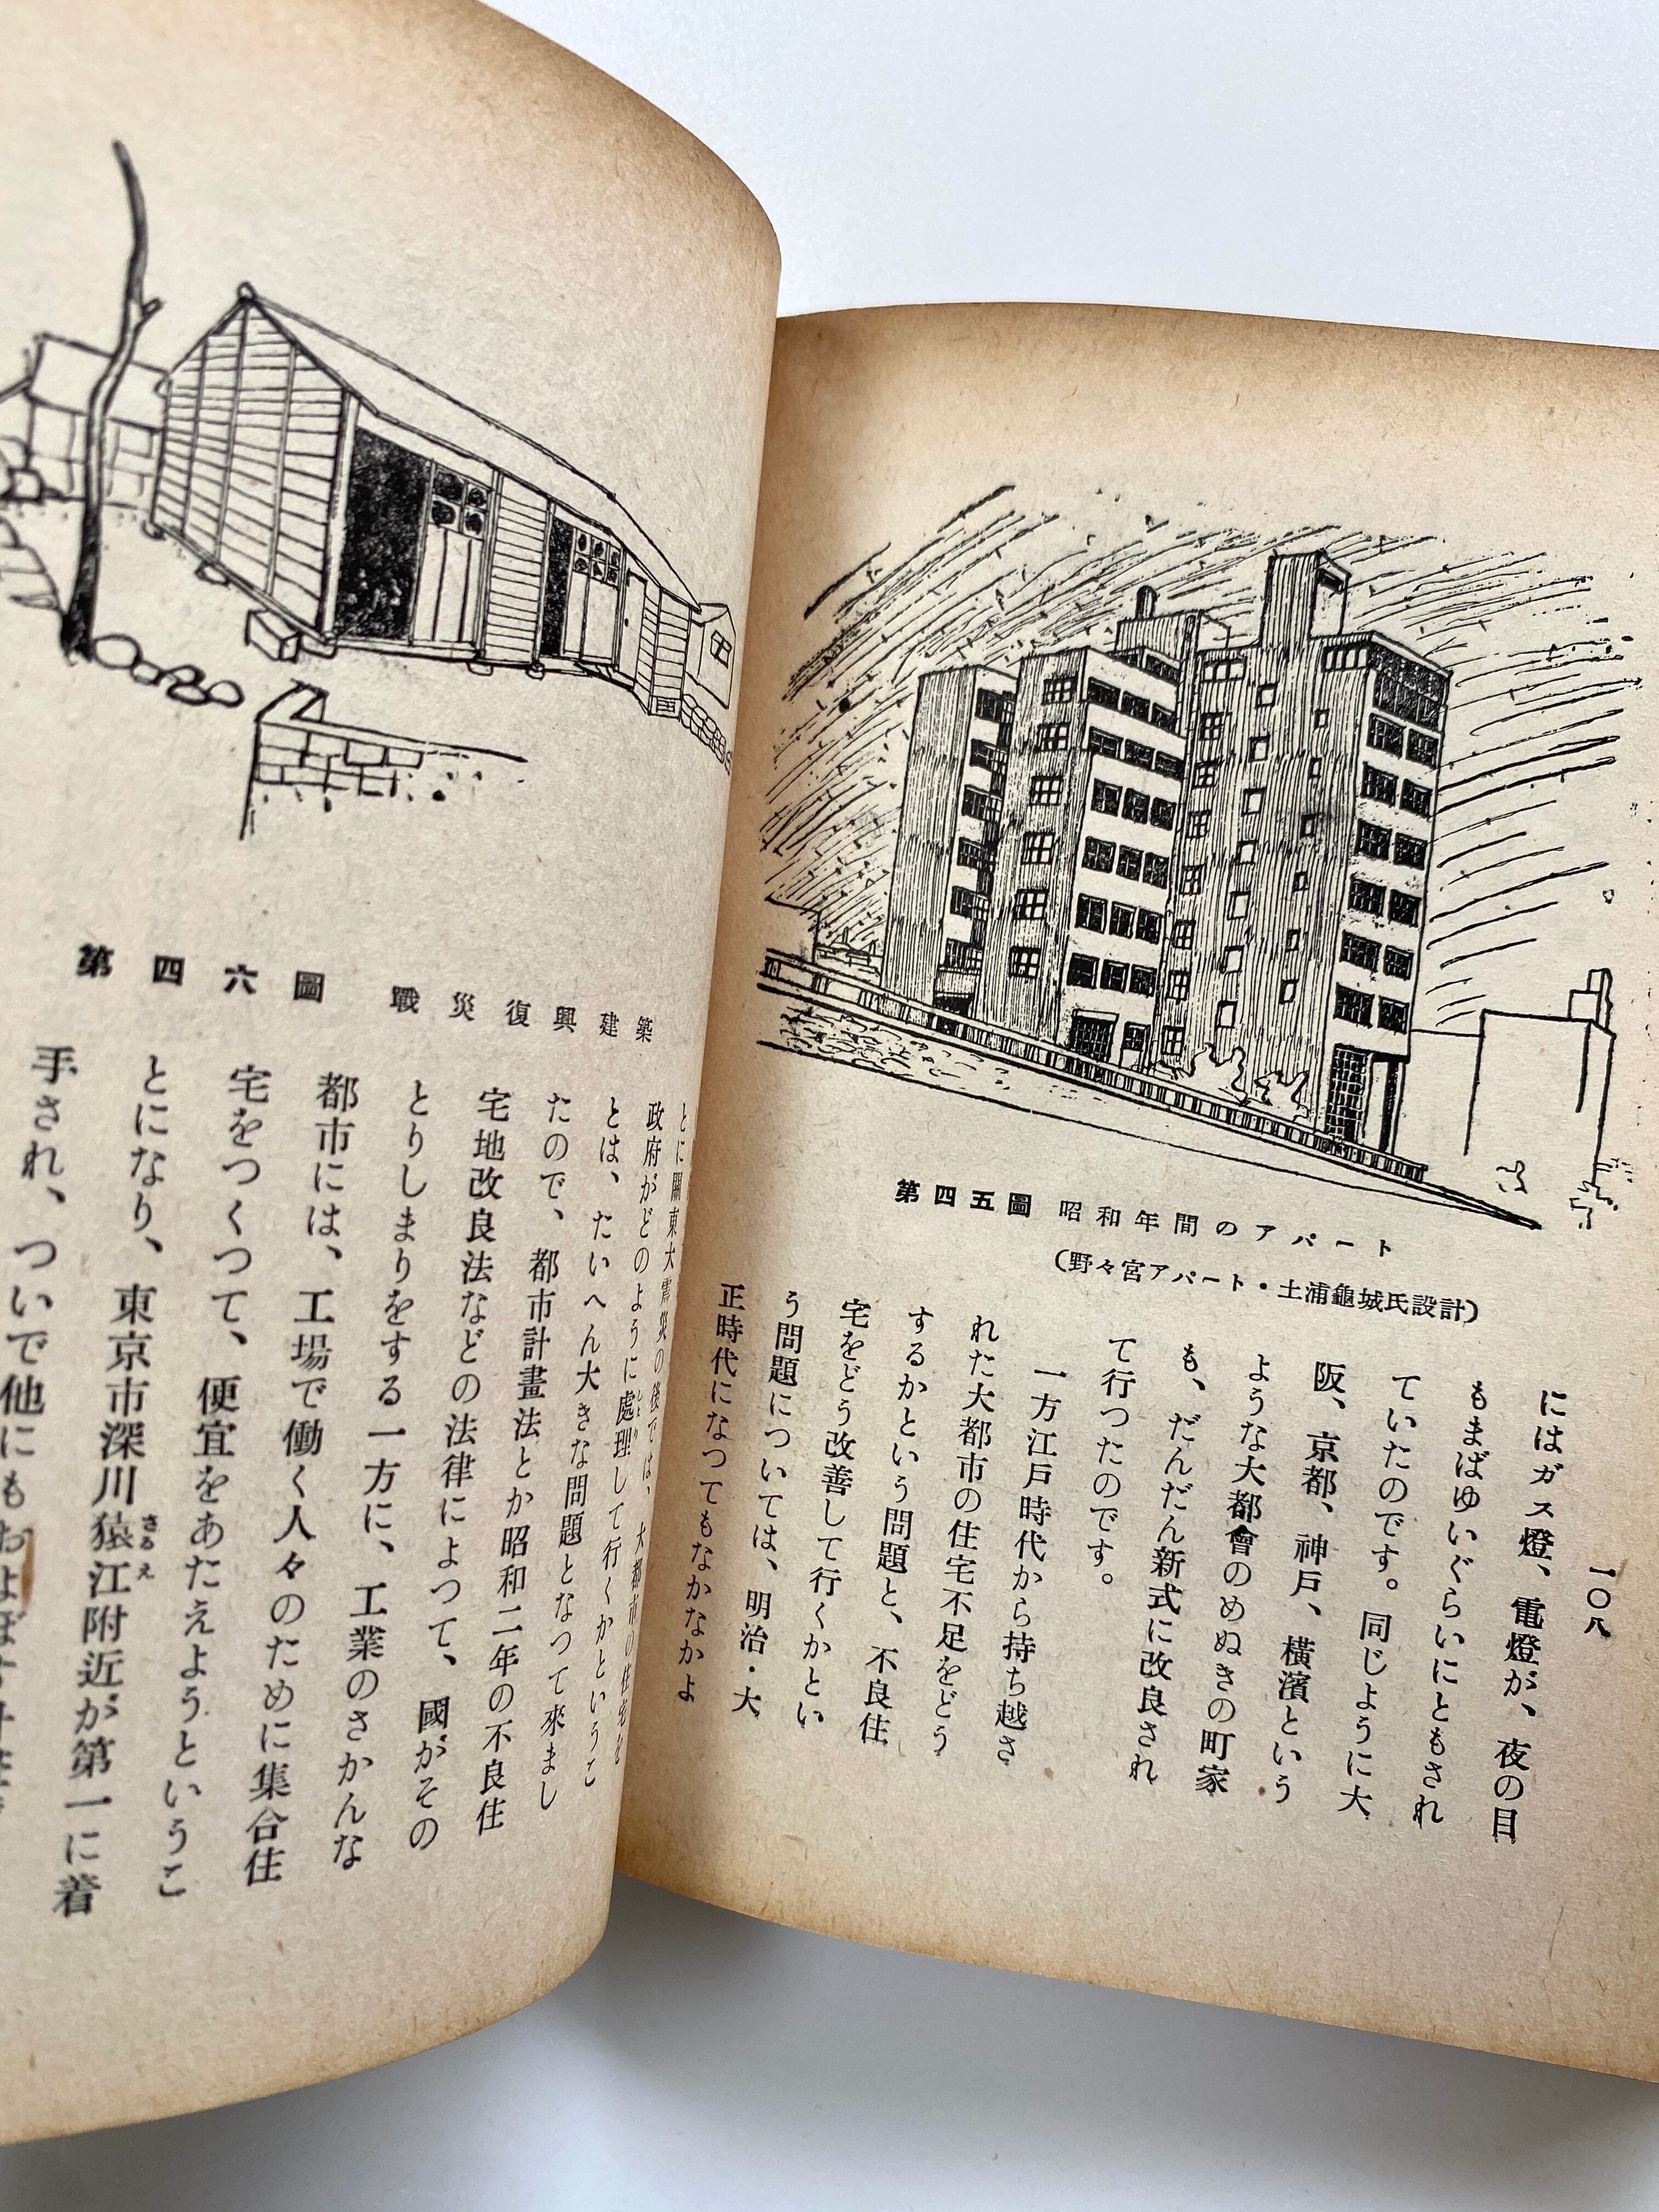 一〇八
にはガス燈、電燈が、夜の目
もまばゆいぐらいにともされ
ていたのです。同じように大
阪、京都、神戸、橫濱という
ような大都會のめぬきの町家
も、だんだん新式に改良され
て行つたのです。
一方江戸時代から持ち越さ
れた大都市の住宅不足をどう
するかという問題と、不良住
宅をどう改善して行くかとい
う問題については、明治・大
正時代になつてもなかなかよ
第四五圖 昭和年間のアパート
(野々宮アパート・土浦龜城氏設計)
とに關東大震災の後では、大都市の住宅を
政府がどのように處理して行くかというこ
とは、たいへん大きな問題となつて來まし
たので、都市計畫法とか昭和二年の不良住
宅地改良法などの法律によつて、國がその
とりしまりをする一方に、工業のさかんな
都市には、工場で働く人々のために集合住
宅をつくつて、便宜をあたえようというこ
とになり、東京市深川猿江附近が第一に着
さるえ
手され、ついで他にもおよぼす
第四六圖 戰災復興建築